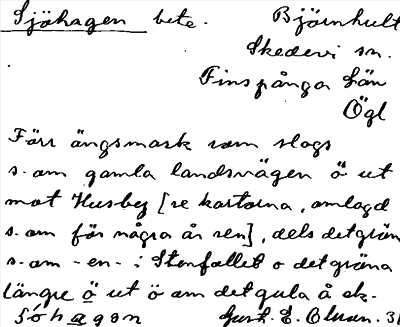 Sjöhagen bete. Björnhult
Skedevi sn.
Finspånga län
Ögl
Förr ängsmark som slogs
s. om gamla landsvägen ö ut
mot Husby [se kartorna, omlagd
s. om för några år sen], dels det grön
s. om -en- i Stenfallet o det gröna
längre ö ut ö om det gula å ek.
Gust. E. Olsson. 31